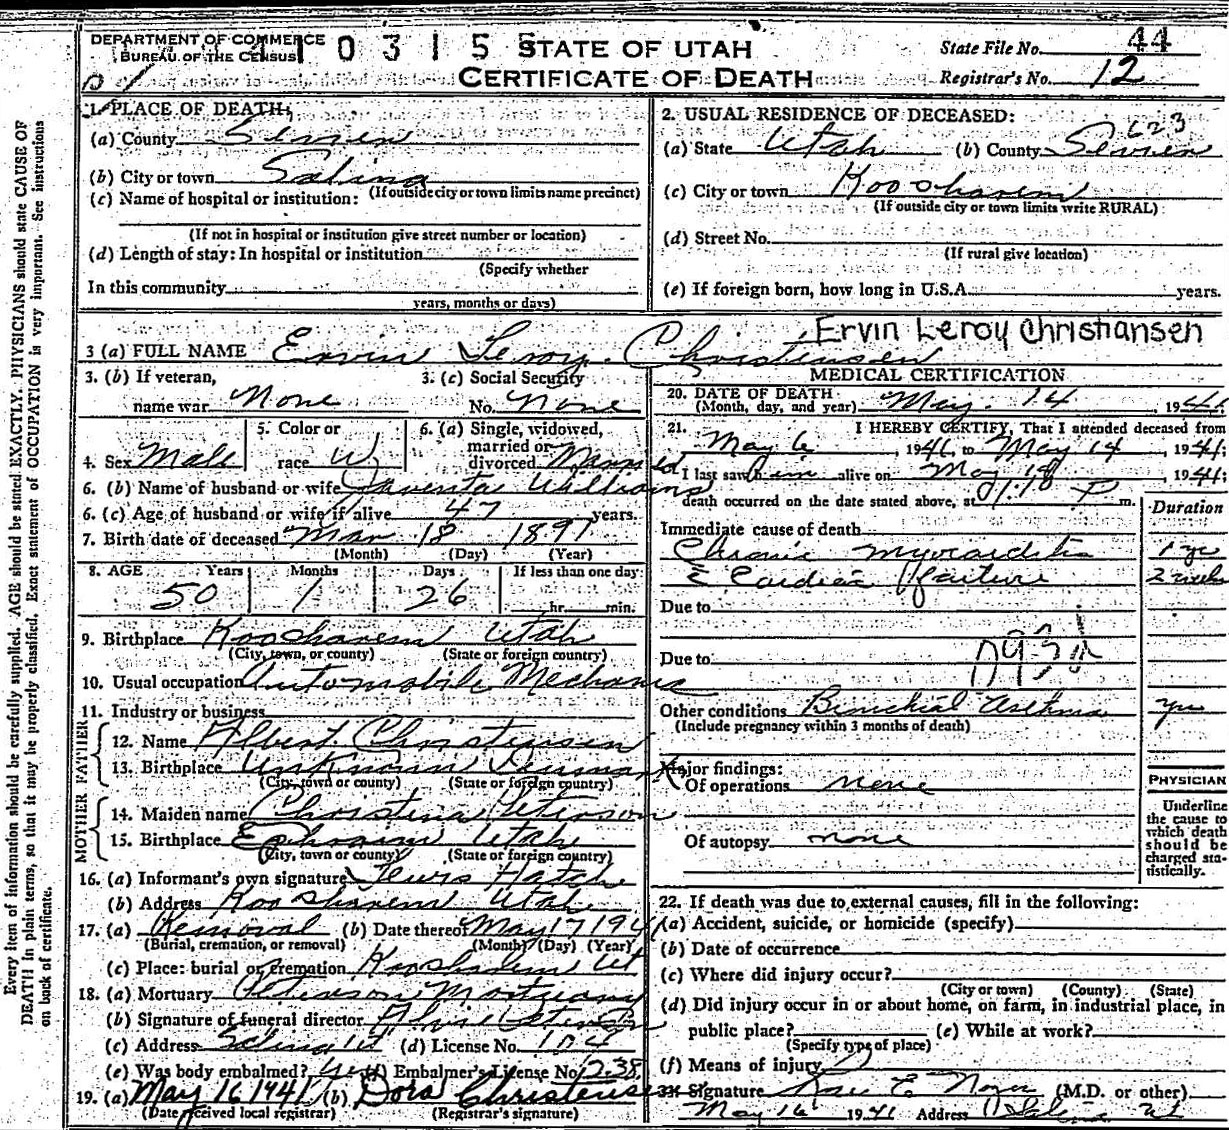 DEPARTMENT OF COMMERCE
BUREAU OF THE CENSUS
10315
STATE OF UTAH
CERTIFICATE OF DEATH
State File No. 44
Registrar's No. 12
Every item of information should be carefully supplied. AGE should be stated EXACTLY. PHYSICIANS should state CAUSE OF
DEATH in plain terms, so that it may be properly classified. Exact statement of OCCUPATION is very important. See instructions
on back of certificate.
1. PLACE OF DEATH:
(a) County Sevier
(b) City or town Salina
(If outside city or town limits name precinct)
(c) Name of hospital or institution:
(If not in hospital or institution give street number or location)
(d) Length of stay: In hospital or institution
(Specify whether
In this community
years, months or days)
2. USUAL RESIDENCE OF DECEASED:
623
(a) State Utah (b) County Sevier
(c) City or town Koosharem
(If outside city or town limits write RURAL)
(d) Street No.
(If rural give location)
(e) If foreign born, how long in U.S.A. years.
Ervin Leroy Christiansen
3 (a) FULL NAME Ervin Leroy Christensen
3. (b) If veteran,
name war None
3. (c) Social Security
No. None
4. Sex Male
5. Color or
race W
6. (a) Single, widowed,
married or
divorced Married
6. (b) Name of husband or wife Juventa Williams
6. (c) Age of husband or wife if alive 47 years.
7. Birth date of deceased Mar 18 1891
(Month) (Day) (Year)
8. AGE Years Months Days If less than one day
50 1 26 hr. min.
9. Birthplace Koosharem Utah
(City, town, or county) (State or foreign country)
10. Usual occupation Automobile Mechanic
11. Industry or business
FATHER
12. Name Albert Christensen
13. Birthplace Unknown Denmark
(City, town or county) (State or foreign country)
MOTHER
14. Maiden name Christina Peterson
15. Birthplace Ephraim Utah
(City, town or county) (State or foreign country)
16. (a) Informant's own signature Lewis Hatch
(b) Address Koosharem Utah
17. (a) Removal (b) Date thereof May 17 194
(Burial, cremation, or removal) (Month) (Day) (Year)
(c) Place: burial or cremation Koosharem Ut
18. (a) Mortuary Peterson Mortuary
(b) Signature of funeral director
(c) Address Salina Ut (d) License No. 104
(e) Was body embalmed? yes (f) Embalmer's License No. 238
19. (a) May 16 1941 (b) Dora Christensen
(Date received local registrar) (Registrar's signature)
MEDICAL CERTIFICATION
20. DATE OF DEATH
(Month, day, and year) May 14, 1941
21. I HEREBY CERTIFY, That I attended deceased from
May 6, 1941, to May 14, 1941;
I last saw him alive on May 14, 1941;
death occurred on the date stated above, at P m.
Duration
Immediate cause of death
Chronic myocarditis 1 yr
Cardiac failure 2 weeks
Due to
Due to
Other conditions Bronchial Asthma yrs
(Include pregnancy within 3 months of death)
Major findings:
Of operations none
Of autopsy none
PHYSICIAN
Underline
the cause to
which death
should be
charged sta-
tistically.
22. If death was due to external causes, fill in the following:
(a) Accident, suicide, or homicide (specify)
(b) Date of occurrence
(c) Where did injury occur?
(City or town) (County) (State)
(d) Did injury occur in or about home, on farm, in industrial place, in
public place? (e) While at work?
(Specify type of place)
(f) Means of injury
Signature Rae E. Noyes (M.D. or other)
May 16 1941 Address Salina Ut